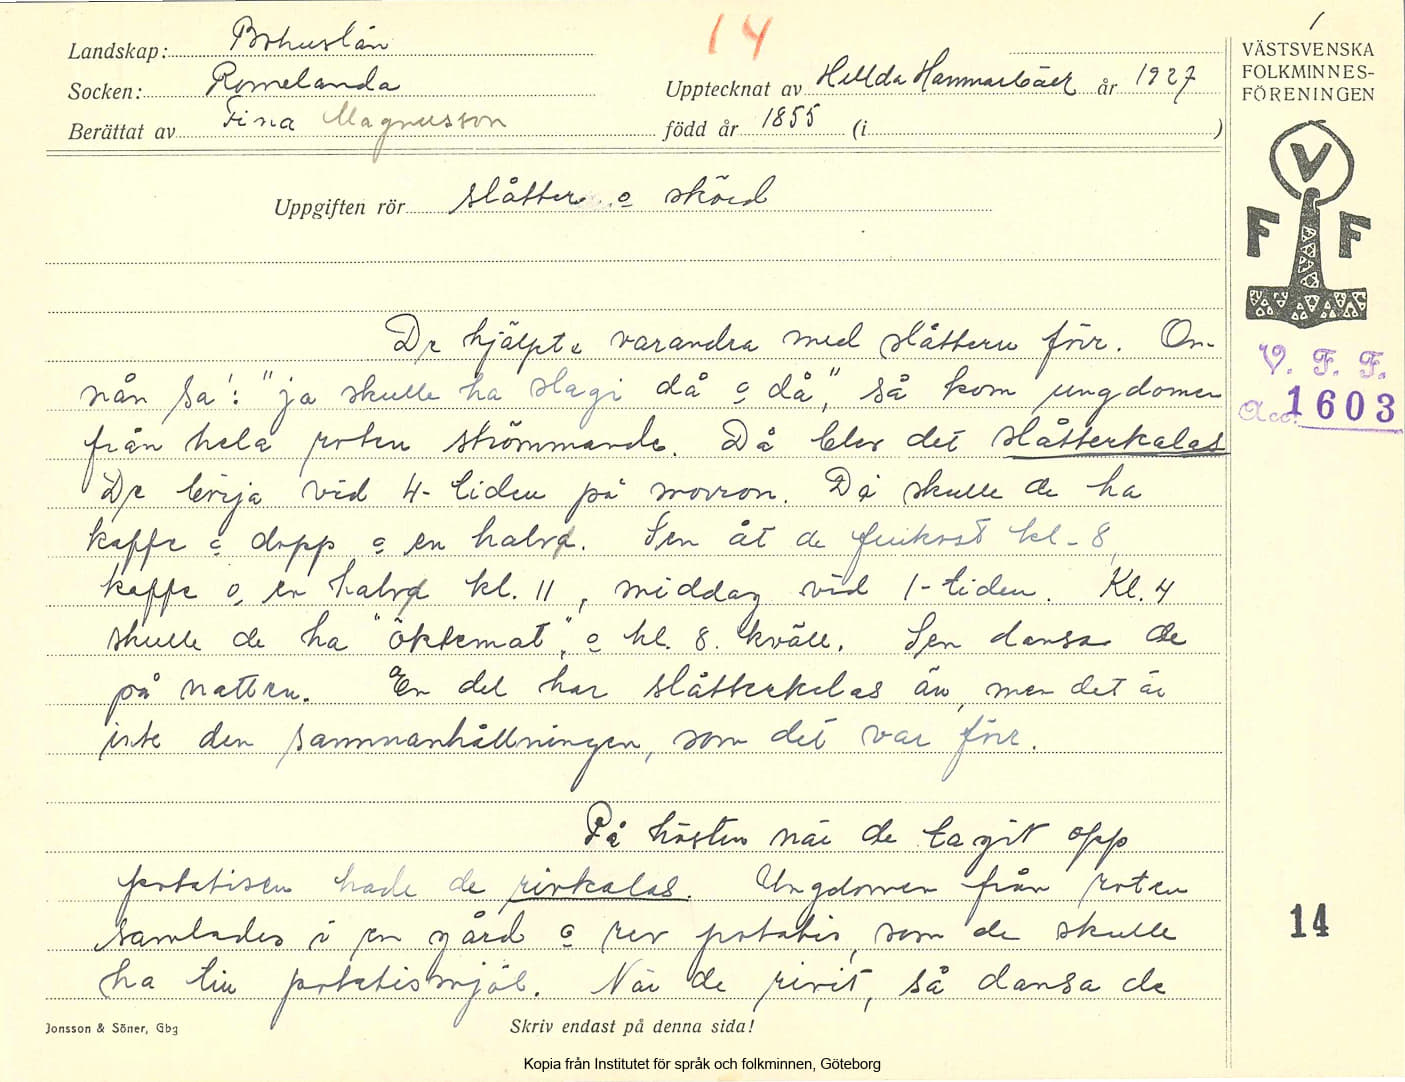 14
Landskap: Bohuslän
Socken: Romelanda
Upptecknat av Hillda Hammarbäck år 1927
Berättat av Fina Magnusson född år 1855 (i )
VÄSTSVENSKA
FOLKMINNES-
FÖRENINGEN
V
F F
V. F. F.
Acc. 1603
Uppgiften rör slåtter o skörd
De hjälpte varandra med slåttern förr. Om
nån sa: "ja skulle ha slagi då o då", så kom ungdomen
från hela roten strömmande. Då blev det slåtterkalas
De börja vid 4-tiden på morron. Då skulle de ha
kaffe o dopp o en halva. Sen åt de frukost kl. 8,
kaffe o en halva kl. 11, middag vid 1-tiden. Kl. 4
skulle de ha "öktemat", o kl. 8. kväll. Sen dansa de
på natten. En del har slåtterkalas än, men det är
inte den sammanhållningen, som det var förr.
På hösten när de tagit opp
potatisen hade de rivkalas. Ungdomen från roten
samlades i en gård o rev potatis, som de skulle
ha till potatismjöl. När de rivit, så dansa de
14
Jonsson & Söner, Gbg
Skriv endast på denna sida!
Kopia från Institutet för språk och folkminnen, Göteborg